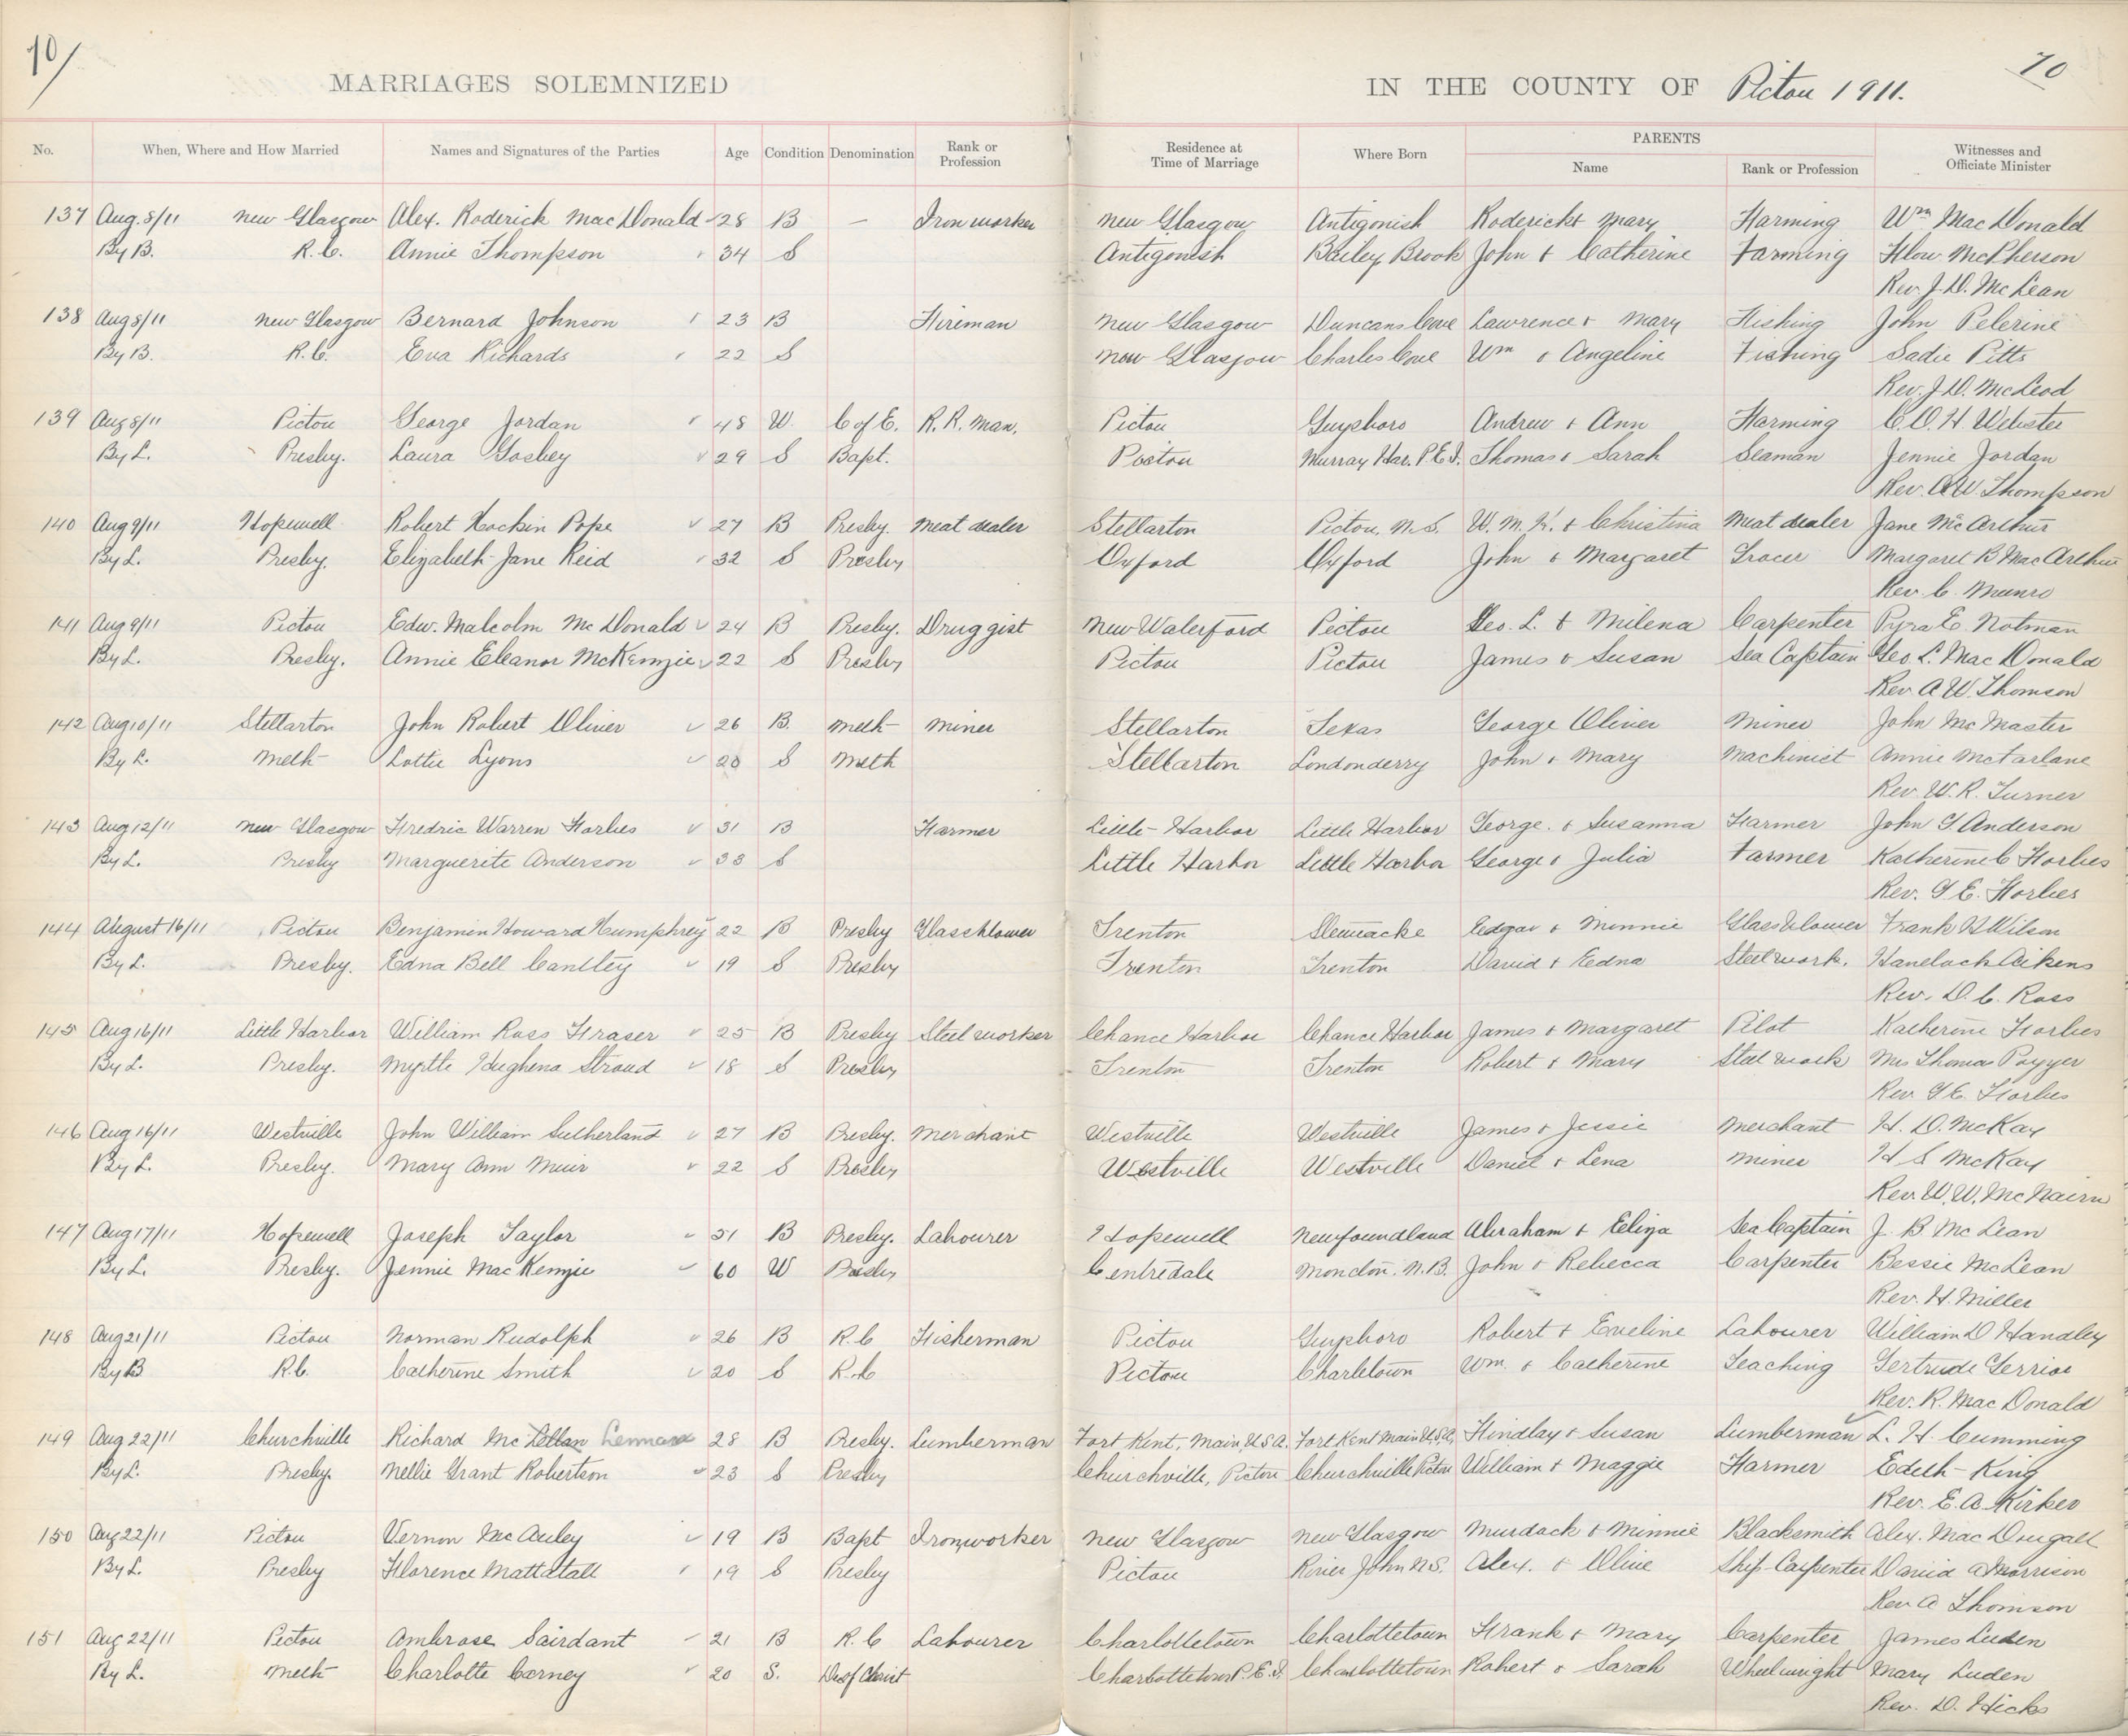 70/
70
MARRIAGES SOLEMNIZED IN THE COUNTY OF Pictou 1911.
No. When, Where and How Married Names and Signatures of the Parties Age Condition Denomination Rank or Profession Residence at Time of Marriage Where Born PARENTS Name Rank or Profession Witnesses and Officiate Minister
137 Aug. 8/11 New Glasgow Alex. Roderick MacDonald 28 B — Iron worker New Glasgow Antigonish Roderick & Mary Farming Wm MacDonald
By B. R.C. Annie Thompson 34 S Antigonish Bailey Brook John & Catherine Farming Flow. McPherson
Rev. J.D. McLean
138 Aug 8/11 New Glasgow Bernard Johnson 23 B Fireman New Glasgow Duncans Cove Lawrence & Mary Fishing John Pelerine
By B. R.C. Eva Richards 22 S New Glasgow Charles Cove Wm & Angeline Fishing Sadie Pitts
Rev. J.D. McLeod
139 Aug 8/11 Pictou George Jordan 48 W. C of E. R.R. Man. Pictou Guysboro Andrew & Ann Farming C.O.H. Webster
By L. Presby. Laura Gosbey 29 S Bapt. Pictou Murray Har. P.E.I. Thomas & Sarah Seaman Jennie Jordan
Rev. A.W. Thompson
140 Aug 9/11 Hopewell Robert Hockin Pope 27 B Presby. Meat dealer Stellarton Pictou, N.S. W.M.K. & Christina Meat dealer Jane McArthur
By L. Presby. Elizabeth Jane Reid 32 S Presby Oxford Oxford John & Margaret Grocer Margaret B MacArthur
Rev. C. Munro
141 Aug 9/11 Pictou Edw. Malcolm McDonald 24 B Presby. Druggist New Waterford Pictou Geo. L. & Milena Carpenter Pyra E. Notman
By L. Presby. Annie Eleanor McKenzie 22 S Presby Pictou Pictou James & Susan Sea Captain Geo. L. MacDonald
Rev A W. Thomson
142 Aug 10/11 Stellarton John Robert Oliver 26 B. Meth Miner Stellarton Texas George Oliver Miner John McMaster
By L. Meth Lottie Lyons 20 S Meth Stellarton Londonderry John & Mary Machinist Annie McFarlane
Rev. W.R. Turner
143 Aug 12/11 New Glasgow Fredric Warren Forbes 31 B Farmer Little Harbor Little Harbor George & Susanna Farmer John G Anderson
By L. Presby Marguerite Anderson 33 S Little Harbor Little Harbor George & Julia Farmer Katherine C Forbes
Rev. G E. Forbes
144 August 16/11 Pictou Benjamin Howard Humphrey 22 B Presby Glassblower Trenton Edgar & Minnie Glassblower Frank H Wilson
By L. Presby. Edna Bell Cantley 19 S Presby Trenton Trenton David & Edna Steelwork. Havelock Aikens
Rev. D.C. Ross
145 Aug 16/11 Little Harbor William Ross Fraser 25 B Presby Steel worker Chance Harbor Chance Harbor James & Margaret Pilot Katherine Forbes
By L. Presby. Myrtle Hughena Stroud 18 S Presby Trenton Trenton Robert & Mary Steel work Mrs Thomas
Rev. G E. Forbes
146 Aug 16/11 Westville John William Sutherland 27 B Presby. Merchant Westville Westville James & Jessie Merchant H. D. McKay
By L. Presby. Mary Ann Muir 22 S Presby Westville Westville Daniel & Lena Miner H S McKay
Rev W.W. McNairn
147 Aug 17/11 Hopewell Joseph Taylor 51 B Presby. Labourer Hopewell Newfoundland Abraham & Eliza Sea Captain J. B McLean
By L. Presby. Jennie MacKenzie 60 W Presby Centredale Moncton. N.B. John & Rebecca Carpenter Bessie McLean
Rev. H. Miller
148 Aug 21/11 Pictou Norman Rudolph 26 B R.C Fisherman Pictou Guysboro Robert & Eveline Labourer William D Handley
By B R.C. Catherine Smith 20 S R.C Pictou Charletown Wm. & Catherine Teaching Gertrude Gerrior
Rev. R. MacDonald
149 Aug 22/11 Churchville Richard McLellan Lennan 28 B Presby. Lumberman Fort Kent, Main, U.S.A. Fort Kent Main U.S.A. Findlay & Susan Lumberman L. H. Cumming
By L. Presby. Nellie Grant Robertson 23 S Presby Churchville, Pictou Churchville Pictou William & Maggie Farmer Edith King
Rev. E. A. Kirker
150 Aug 22/11 Pictou Vernon McAuley 19 B Bapt Ironworker New Glasgow New Glasgow Murdock & Minnie Blacksmith Alex. MacDougall
By L. Presby Florence Mattatall 19 S Presby Pictou River John N.S. Alex. & Olive Ship Carpenter David A Morrison
Rev A Thomson
151 Aug 22/11 Pictou Ambrose Sairdant 21 B R.C Labourer Charlottetown Charlottetown Frank & Mary Carpenter James Luden
By L. Meth Charlotte Corney 20 S. D of Christ Charlottetown P.E.I. Charlottetown Robert & Sarah Wheelwright Mary Luden
Rev. D. Hicks